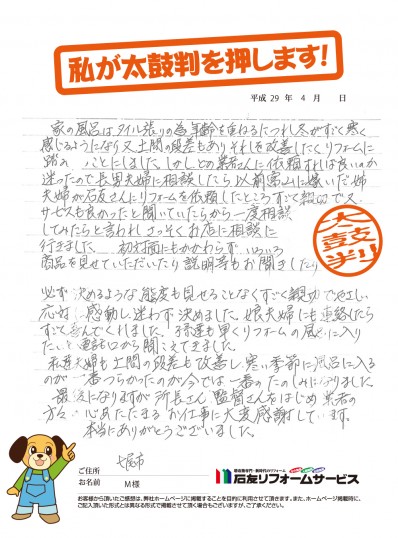 私が太鼓判を押します!
平成29年 4月 日
家の風呂はタイル張りの為年齢を重ねるにつれ冬がすごく寒く
感じるようになり又土間の段差もありそれを改善したくリフォームに
踏み ことにしました。しかしどの業者さんに依頼すれば良いのか
迷ったので長男夫婦に相談したら以前富山に嫁いだ姉
夫婦が石友さんにリフォームを依頼したところすごく親切で又
サービスも良かったと聞いていたらから一度相談
してみたらと言われさっそくお店に相談に
行きました。 初対面にもかかわらず いろいろ
商品を見せていただいたり 説明等もお聞きしたり
太鼓判
必ず決めるような態度も見せることなくすごく親切でやさしい
応対 感動し迷わず決めました。娘夫婦にも連絡したら
すごく喜んでくれました。 子供達も早くリフォームの風呂に入り
たいと電話口から聞こえてきました。
私達夫婦も土間の段差も改善し寒い季節に風呂に入る
のが一番つらかったのが今では一番のたのしみになりました。
最後になりますが所長さん 監督さんをはじめ 業者の
方々 心あたたまる お仕事に大変感謝しています。
本当にありがとうございました。
ご住所 七尾市
お名前 M様
石友リフォームサービス
お客様から頂いたご感想は、弊社ホームページに掲載することを目的に利用させて頂きます。また、ホームページ掲載時に、
ご記入頂いた形式とは異なる形式で掲載させて頂く場合もございますが、ご了承ください。